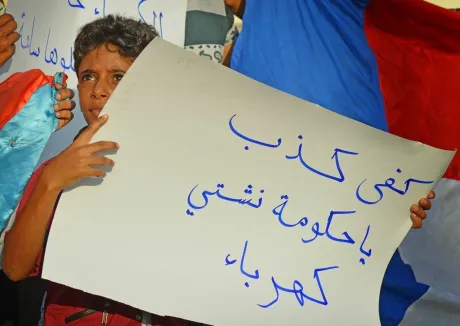 كفى كذب
ياحكومة نشتي
كهرباء